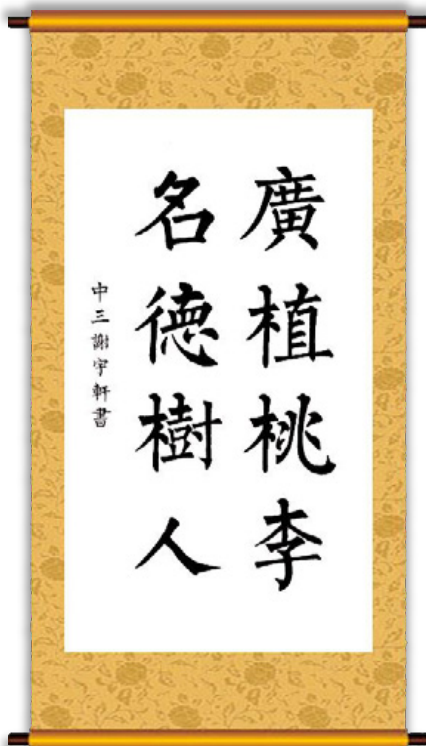 廣植桃李
名德樹人
中三謝宇軒書